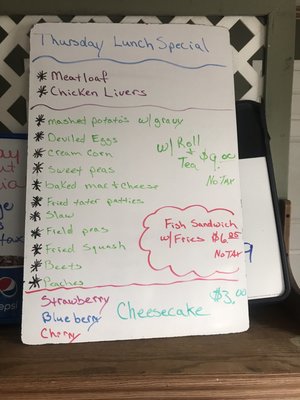 Thursday Lunch Special
* Meatloaf
* Chicken Livers
* mashed potato's w/ gravy
* Deviled Eggs
* Cream Corn
* Sweet peas
* baked mac + cheese
* Fried tater patties
* Slaw
* Field peas
* Fried Squash
* Beets
* Peaches
w/ Roll
+
Tea $9.00
No TAX
Fish Sandwich
w/ Fries $6.85
No TAX
Strawberry
Blueberry
Cherry
Cheesecake
$3.00
pepsi